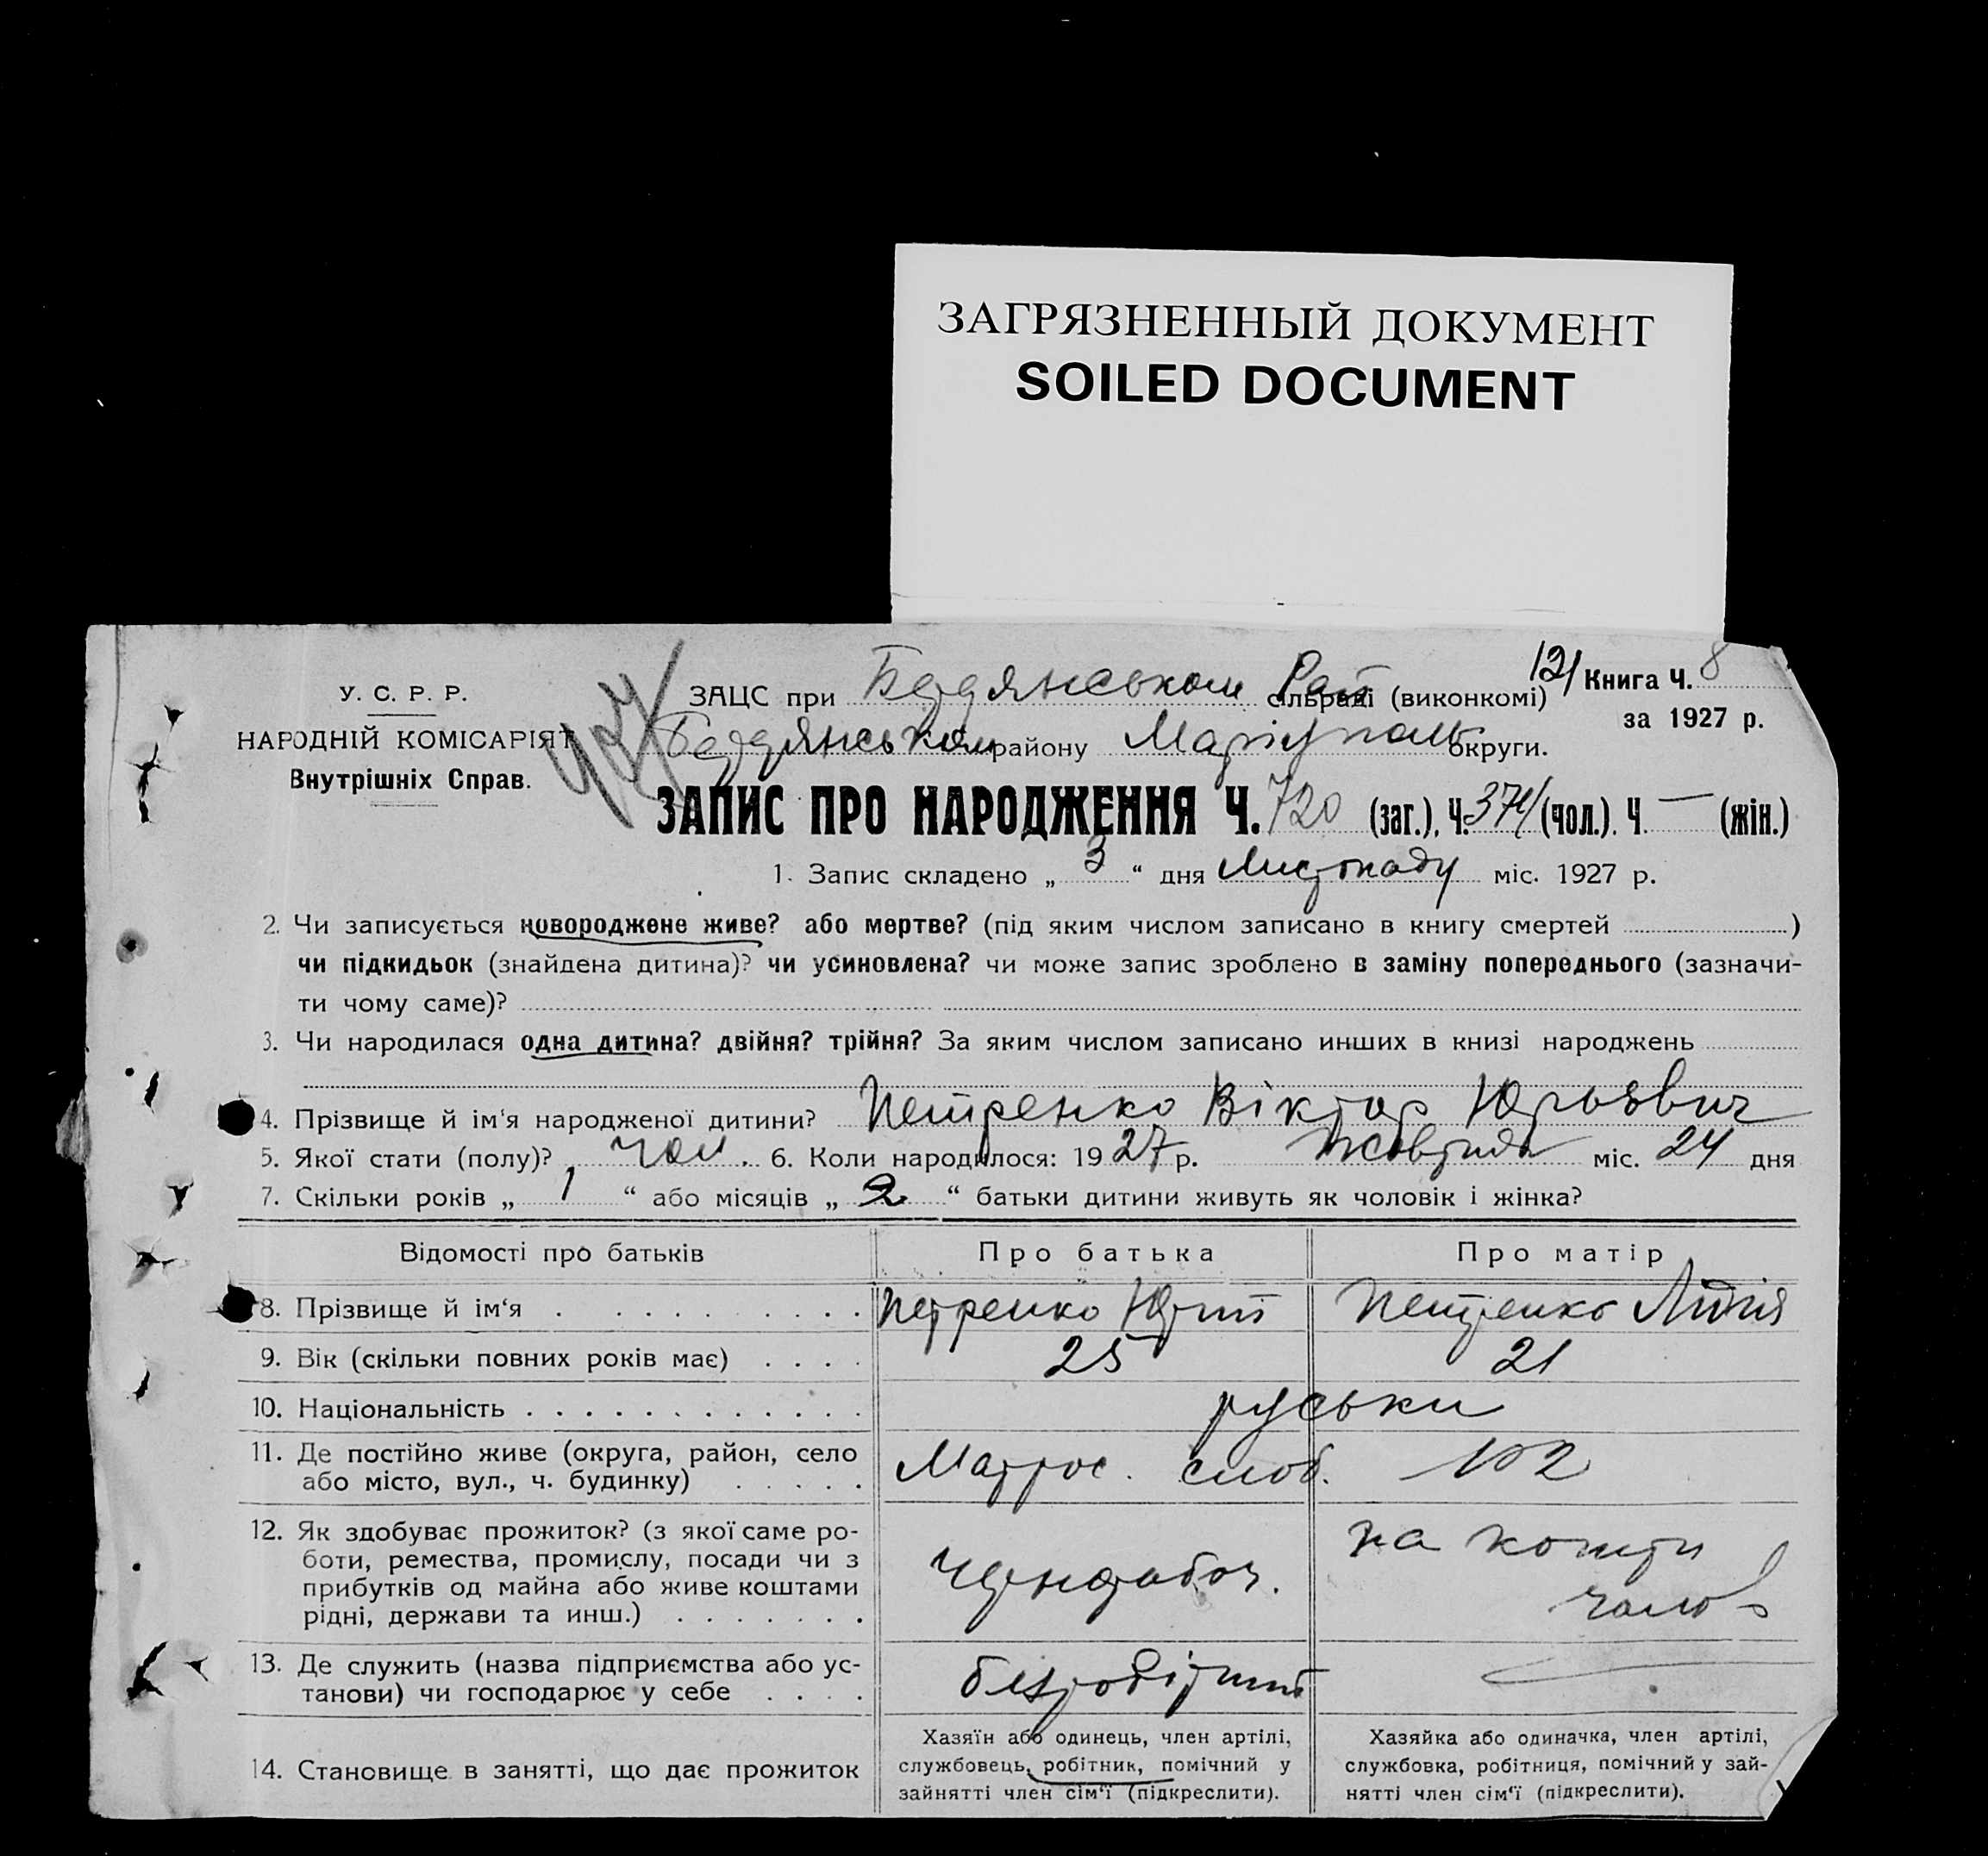 ЗАГРЯЗНЕННЫЙ ДОКУМЕНТ
SOILED DOCUMENT
У. С. Р. Р.
НАРОДНІЙ КОМІСАРІЯТ
Внутрішніх Справ.
ЗАЦС при Бердянськом Рай сільраді (виконкомі)
121 Книга Ч. 8
за 1927 р.
Бердянськом району Маріуполь округи.
ЗАПИС ПРО НАРОДЖЕННЯ Ч. 720 (заг.), Ч. 374 (чол.). Ч. — (жін.)
1. Запис складено „ 3 “ дня Листопаду міс. 1927 р.
2. Чи записується новороджене живе? або мертве? (під яким числом записано в книгу смертей )
чи підкидьок (знайдена дитина)? чи усиновлена? чи може запис зроблено в заміну попереднього (зазначи-
ти чому саме)?
3. Чи народилася одна дитина? двійня? трійня? За яким числом записано инших в книзі народжень
4. Прізвище й ім'я народженої дитини? Петренко Віктор Юрьевич
5. Якої стати (полу)? чол. 6. Коли народилося: 1927 р. Жовтня міс. 24 дня
7. Скільки років „ 1 “ або місяців „ 2 “ батьки дитини живуть як чоловік і жінка?
Відомості про батьків Про батька Про матір
8. Прізвище й ім'я Петренко Юрий Петренко Лідія
9. Вік (скільки повних років має) 25 21
10. Національність руськи
11. Де постійно живе (округа, район, село
або місто, вул., ч. будинку)
Матрос. слоб. 102
12. Як здобуває прожиток? (з якої саме ро-
боти, ремества, промислу, посади чи з
прибутків од майна або живе коштами
рідні, держави та инш.)
на кошти
чолов
13. Де служить (назва підприємства або ус-
танови) чи господарює у себе
безробітний
14. Становище в занятті, що дає прожиток
Хазяїн або одинець, член артілі,
службовець, робітник, помічний у
зайнятті член сім'ї (підкреслити).
Хазяйка або одиначка, член артілі,
службовка, робітниця, помічний у зай-
нятті член сім'ї (підкреслити).